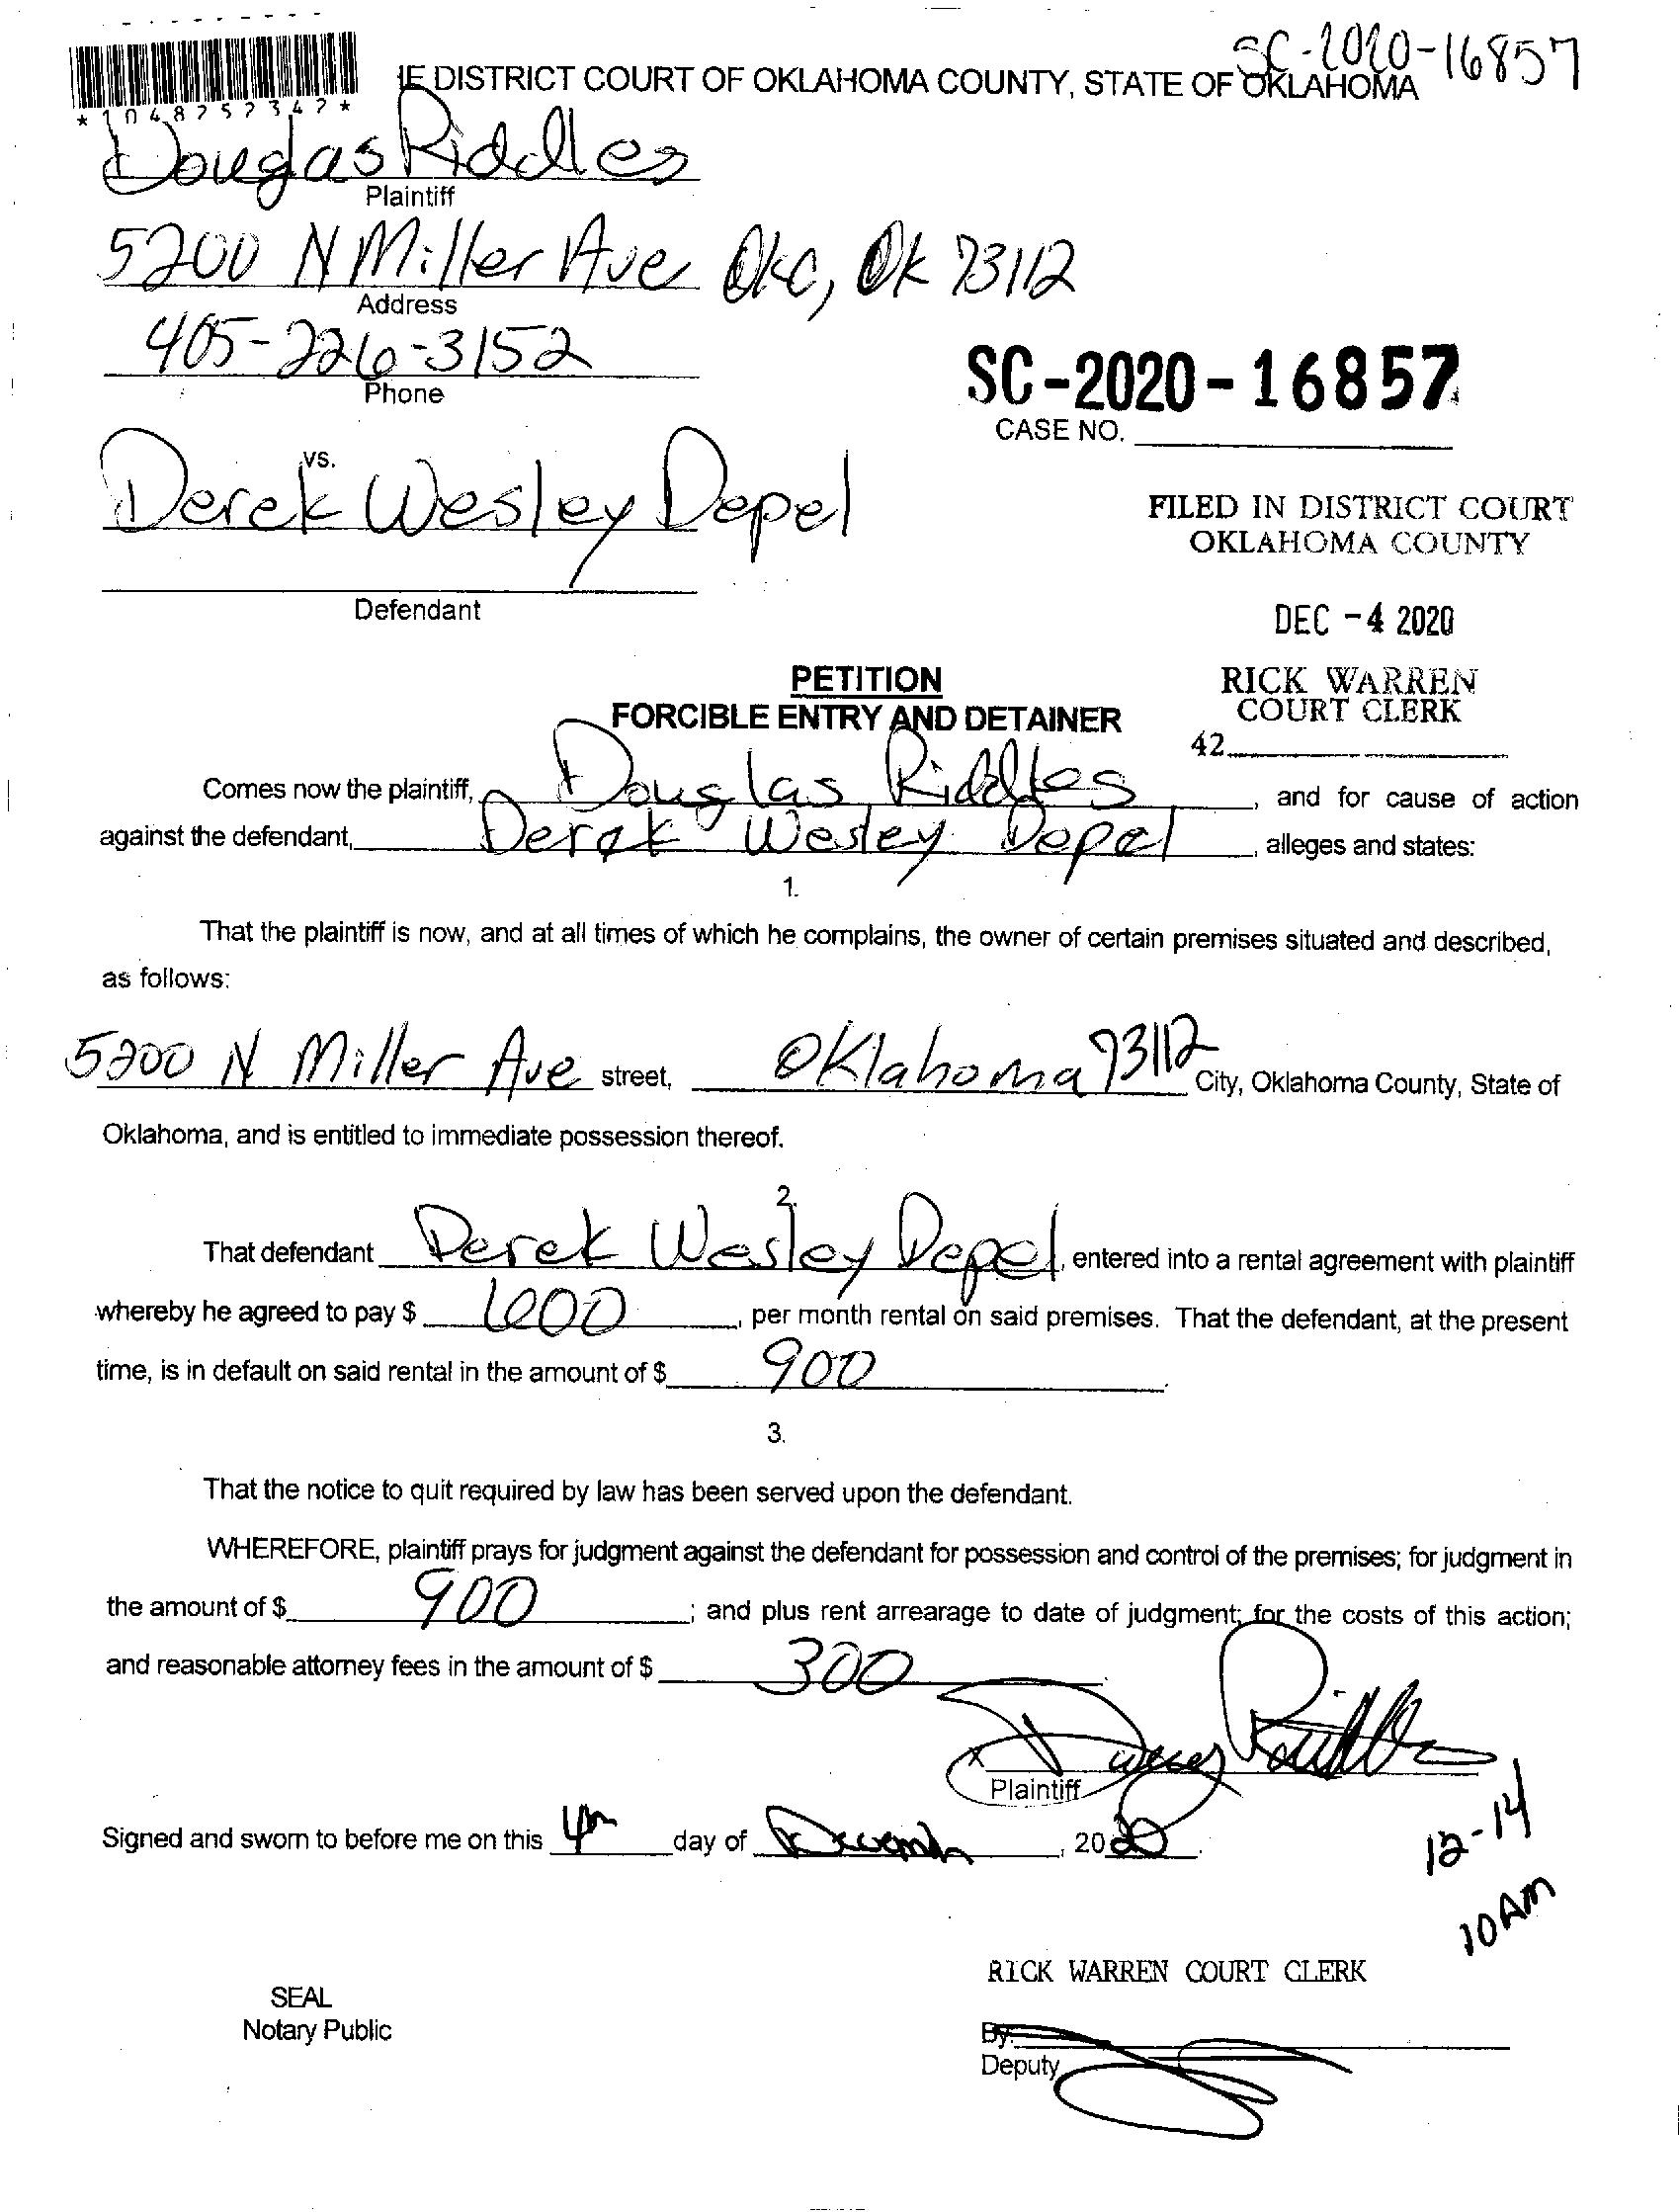 SC-2020-16857
IE DISTRICT COURT OF OKLAHOMA COUNTY, STATE OF OKLAHOMA
*1048252342*
Douglas Riddles
Plaintiff
5200 N Miller Ave OKC, OK 73112
Address
405-226-3152
Phone
SC-2020-16857
CASE NO.
vs.
Derek Wesley Depel
FILED IN DISTRICT COURT
OKLAHOMA COUNTY
Defendant
DEC -4 2020
PETITION
RICK WARREN
FORCIBLE ENTRY AND DETAINER
COURT CLERK
42
Comes now the plaintiff, Douglas Riddles, and for cause of action
against the defendant, Derek Wesley Depel, alleges and states:
1.
That the plaintiff is now, and at all times of which he complains, the owner of certain premises situated and described,
as follows:
5200 N Miller Ave street, Oklahoma 73112 City, Oklahoma County, State of
Oklahoma, and is entitled to immediate possession thereof.
2.
That defendant Derek Wesley Depel, entered into a rental agreement with plaintiff
whereby he agreed to pay $ , per month rental on said premises. That the defendant, at the present
time, is in default on said rental in the amount of $ 900.
3.
That the notice to quit required by law has been served upon the defendant.
WHEREFORE, plaintiff prays for judgment against the defendant for possession and control of the premises; for judgment in
the amount of $ 900; and plus rent arrearage to date of judgment; for the costs of this action;
and reasonable attorney fees in the amount of $ 300
Plaintiff
Signed and sworn to before me on this 4th day of December, 2020.
12-14
10AM
RICK WARREN COURT CLERK
SEAL
Notary Public
By:
Deputy